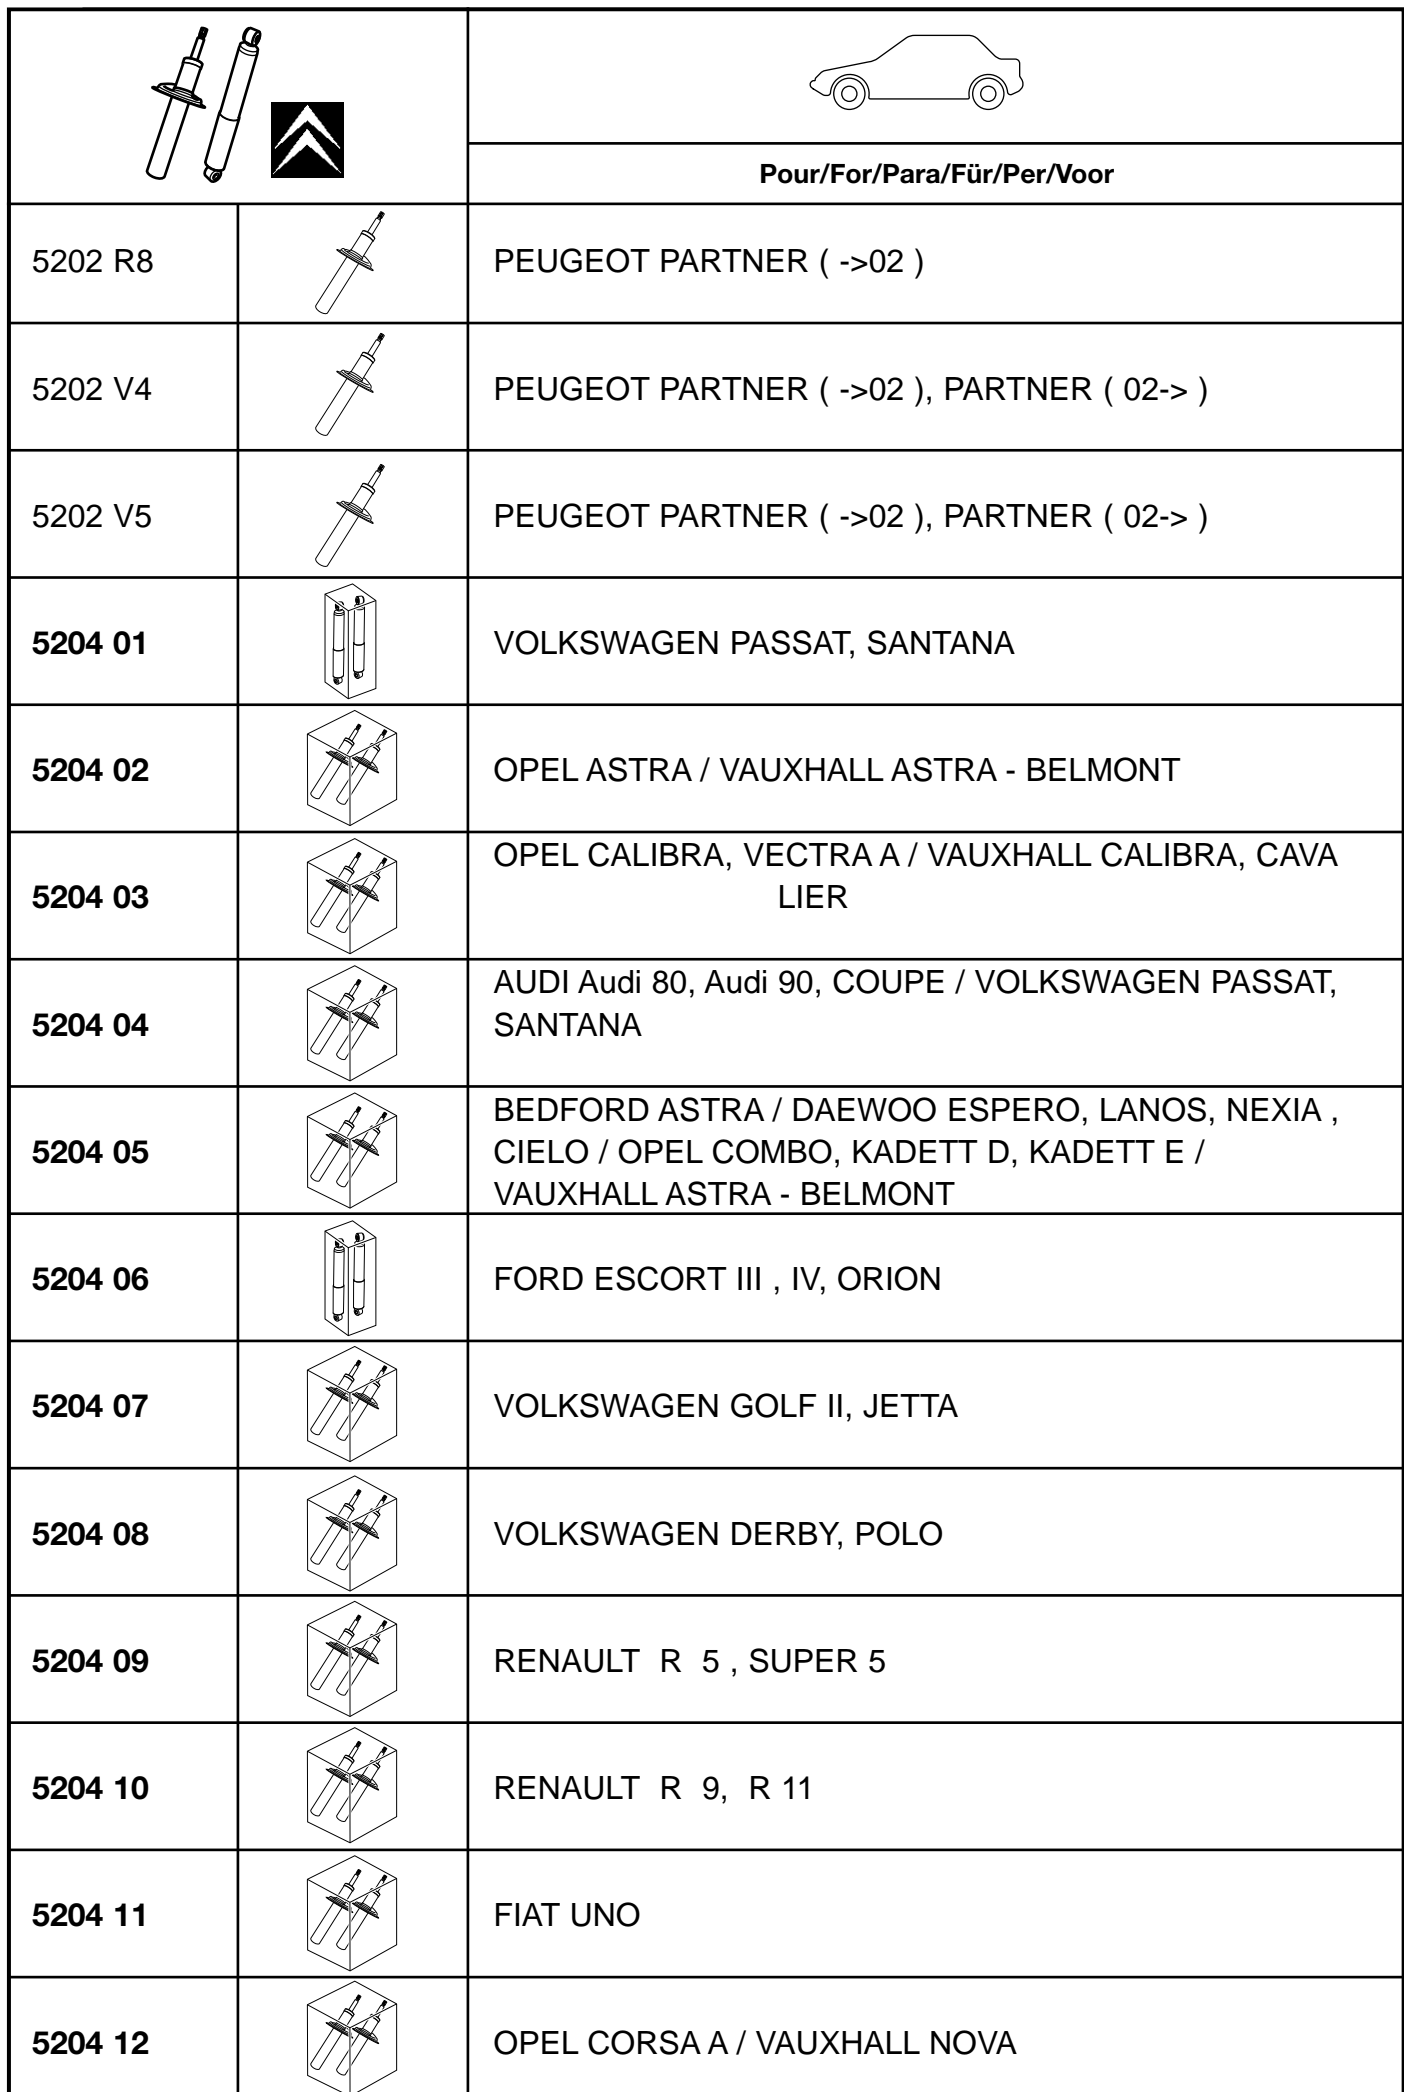 Pour/For/Para/Für/Per/Voor
5202 R8 PEUGEOT PARTNER ( ->02 )
5202 V4 PEUGEOT PARTNER ( ->02 ), PARTNER ( 02-> )
5202 V5 PEUGEOT PARTNER ( ->02 ), PARTNER ( 02-> )
5204 01 VOLKSWAGEN PASSAT, SANTANA
5204 02 OPEL ASTRA / VAUXHALL ASTRA - BELMONT
5204 03 OPEL CALIBRA, VECTRA A / VAUXHALL CALIBRA, CAVA
LIER
5204 04 AUDI Audi 80, Audi 90, COUPE / VOLKSWAGEN PASSAT,
SANTANA
5204 05 BEDFORD ASTRA / DAEWOO ESPERO, LANOS, NEXIA ,
CIELO / OPEL COMBO, KADETT D, KADETT E /
VAUXHALL ASTRA - BELMONT
5204 06 FORD ESCORT III , IV, ORION
5204 07 VOLKSWAGEN GOLF II, JETTA
5204 08 VOLKSWAGEN DERBY, POLO
5204 09 RENAULT R 5 , SUPER 5
5204 10 RENAULT R 9, R 11
5204 11 FIAT UNO
5204 12 OPEL CORSA A / VAUXHALL NOVA